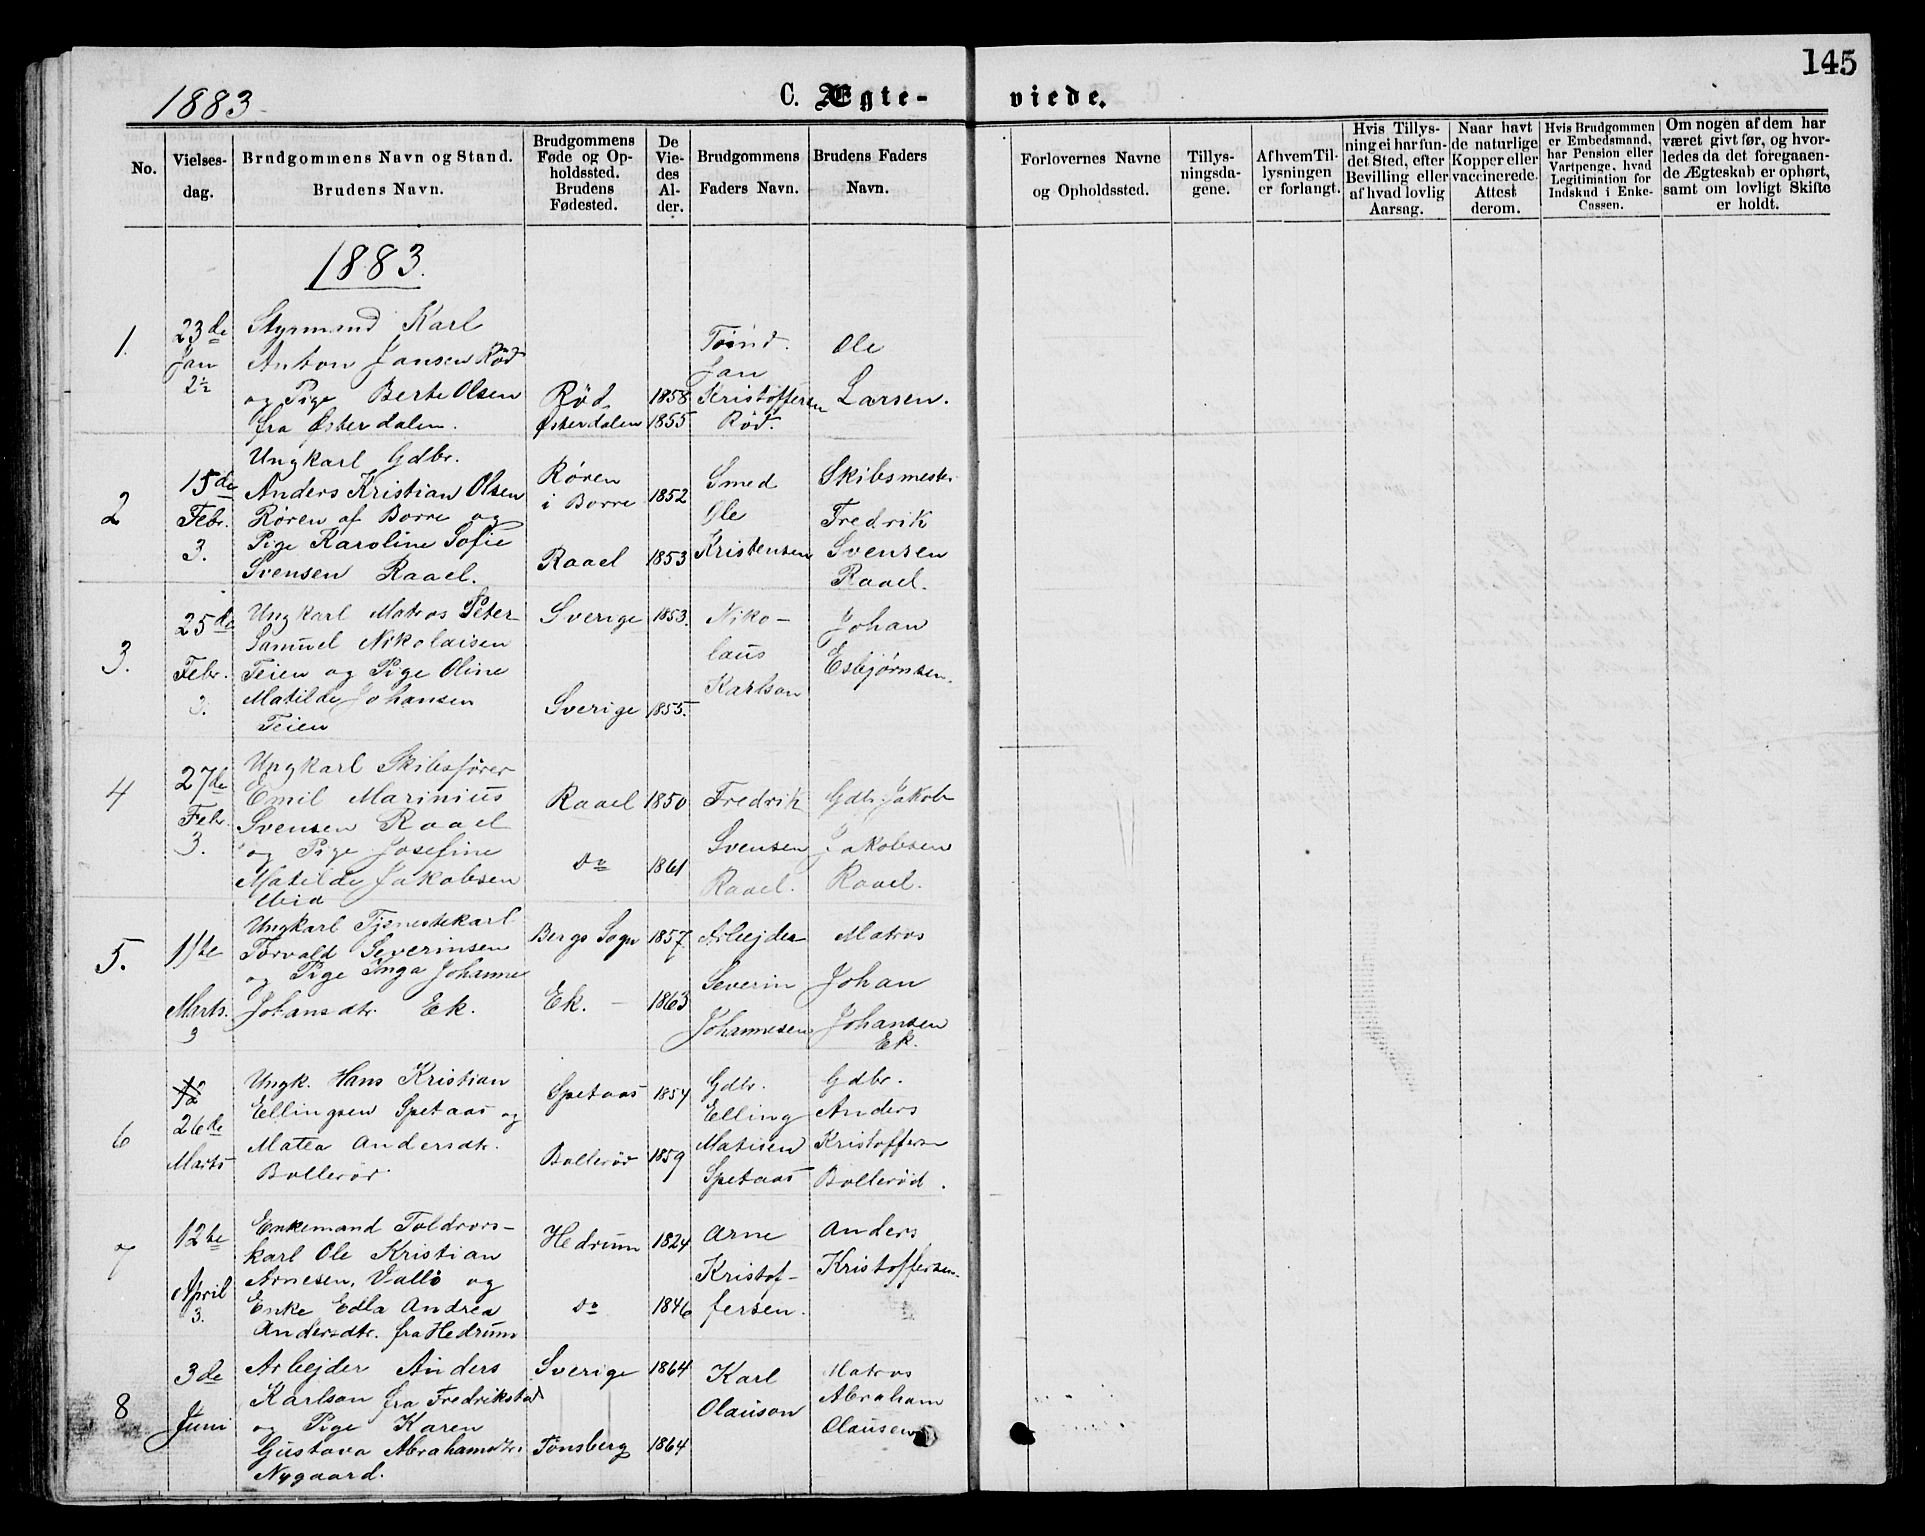 145
1883
C. Ægte-
viede.
No.
Vielses-
dag.
Brudgommens Navn og Stand.
Brudens Navn.
Brudgommens
Føde og Op-
holdssted.
Brudens
Fødested.
De
Vie-
des
Al-
der.
Brudgommens
Faders Navn.
Brudens Faders
Navn.
Forlovernes Navne
og Opholdssted.
Tillys-
ningsda-
gene.
Af hvem Til-
lysningen
er forlangt.
Hvis Tillys-
ning ei har fun-
det Sted, efter
Bevilling eller
af hvad lovlig
Aarsag.
Naar havt
de naturlige
Kopper eller
vaccinerede.
Attest
derom.
Hvis Brudgommen
er Embedsmand,
har Pension eller
Vartpenge, hvad
Legitimation for
Indskud i Enke-
Cassen.
Om nogen af dem har
været givt før, og hvor-
ledes da det foregaaen-
de Ægteskab er ophørt,
samt om lovligt Skifte
er holdt.
1883.
1.
23de
Jan
2½
Styrmand Karl
Anton Jansen Röd
og Pige Berte Olsen
fra Østerdalen.
Röd
Østerdalen
1858
1855
Tömd.
Jan
Kristoffersen
Röd.
Ole
Larsen.
2
15de
Febr.
3.
Ungkarl Gdbr.
Anders Kristian Olsen
Røren af Borre og
Pige Karoline Sofie
Svensen Raael.
Røren
i Borre
Raael
1852
1853
Smed
Ole
Kristensen
Skibsmester
Fredrik
Svensen
Raael.
3.
25de
Febr.
3.
Ungkarl Matros Peter
Samuel Nikolaisen
Teien og Pige Oline
Matilde Johansen
Teien
Sverige
Sverige
1853.
1855.
Niko-
laus
Karlson
Johan
Esbjørnsen.
4
27de
Febr.
3.
Ungkarl Skibsfører
Emil Marinius
Svensen Raael
og Pige Josefine
Matilde Jakobsen
ibid
Raael
do
1850
1861
Fredrik
Svensen
Raael.
Gdbr. Jakob
Jakobsen
Raael.
5.
11te
Marts.
3
Ungkarl Tjenestekarl
Torvald Severinsen
og Pige Inga Johanne
Johansdtr. Ek.
Bergs Sogn
Ek. —
1857
1863
Arbejder
Severin
Johannesen
Matros
Johan
Johansen
Ek.
6
12
26de
Marts
Ungk. Hans Kristian
Ellingsen Spetaas og
Matea Andersdtr.
Bollerød
Spetaas
Bollerød
1854
1859
Gdbr.
Elling
Matisen
Spetaas
Gdbr.
Anders
Kristoffersen
Bollerød.
7
12te
April
3.
Enkemand Toldrors-
karl Ole Kristian
Arnesen, Vallö og
Enke Edla Andrea
Andersdtr. fra Hedrum
Hedrum
do
1824
1846
Arne
Kristof-
fersen.
Anders
Kristoffersen.
8
3de
Juni
Arbejder Anders
Karlson fra Fredrikstad
og Pige Karen
Gustava Abrahamsdtr.
Nygaard.
Sverige
Tönsberg
1864
1864
Karl
Olauson
Matros
Abraham
Olausen